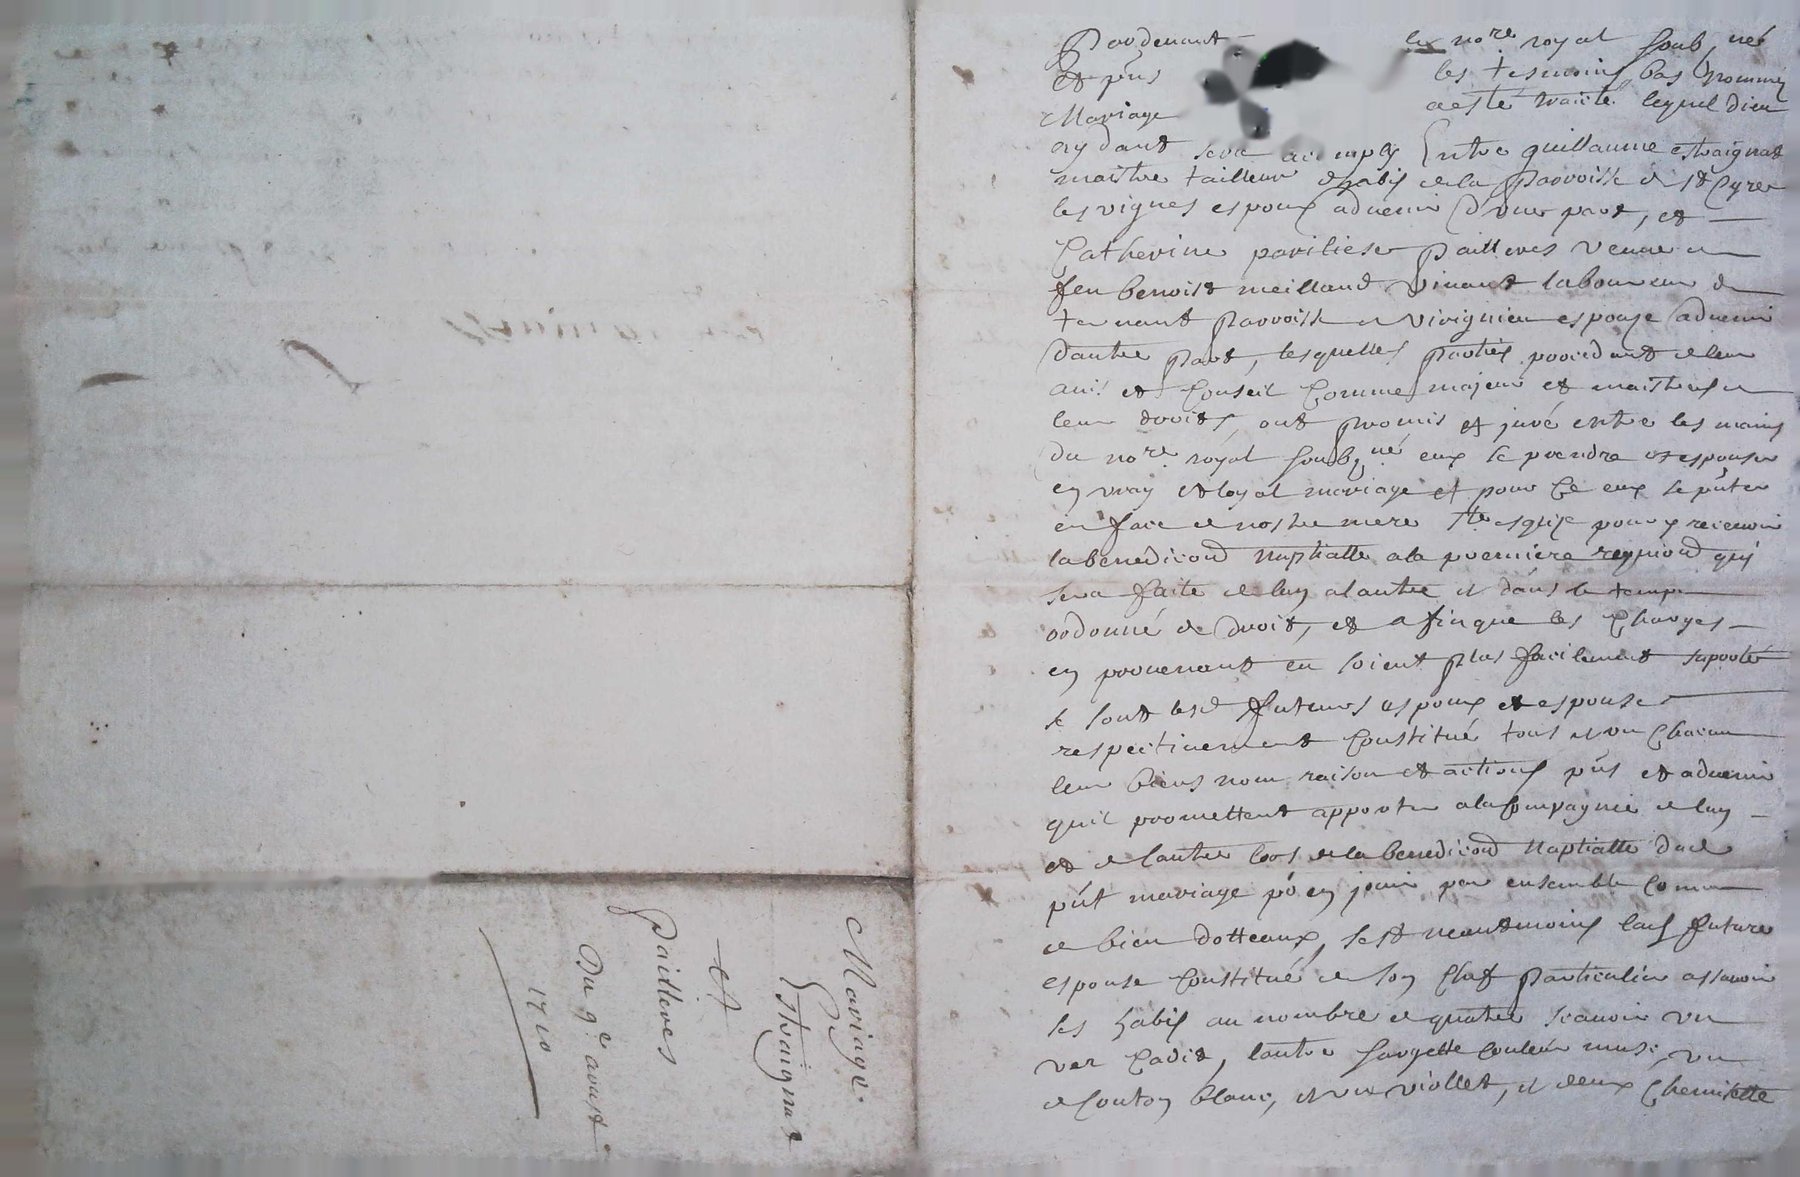 Mariage
Estraignat
et
Pailleres
Du 9e aoust
1710
Pardevant le nore royal soubs né
et pñs les tesmoins bas nommés
Mariage a esté traicté lequel dieu
aydant sera accomply Entre guillaume estraignat
maistre tailleur dhabis de la parroisse de st Cyre
les vignes espoux advenir d'une part, et
Catherine pailleres veuve de
feu benoist meilland vivant laboureur de
parroisse de espouse advenir
dautre part, lesquelles parties procedant de leur
avis et Conseil Comme majeur et maistres de
leur droits, ont promis et juré entre les mains
du nore royal soubsné eux se prendre et espouser
en vray et loyal mariage et pour Ce eux se pñter
en face de nostre mere ste esglize pour y recevoir
la benediction nuptialle a la premiere requiond quy
sera faite de lun a lautre et dans le temps
ordonné de droit, et afin que les Charges
en provenant en soient plus facilement suporté
se sont lesd futeurs espoux et espouse
respectivement Constitué tous et un Chacun
leur biens nom raison et actions pñs et advenir
quil promettent apporter a la Compagnie de lun
et de lautre lors de la benediction nuptialle dud
pñt mariage pō en jouir par ensemble Comme
de bien dotteaux, sest neantmoins lad future
espouse Constitué de son Chef particulier assavoir
ses habis au nombre de quatre scavoir un
ver Cadit, lautre sargette couleur muse, un
de couton blanc, et un viollet, et deux Chemisette